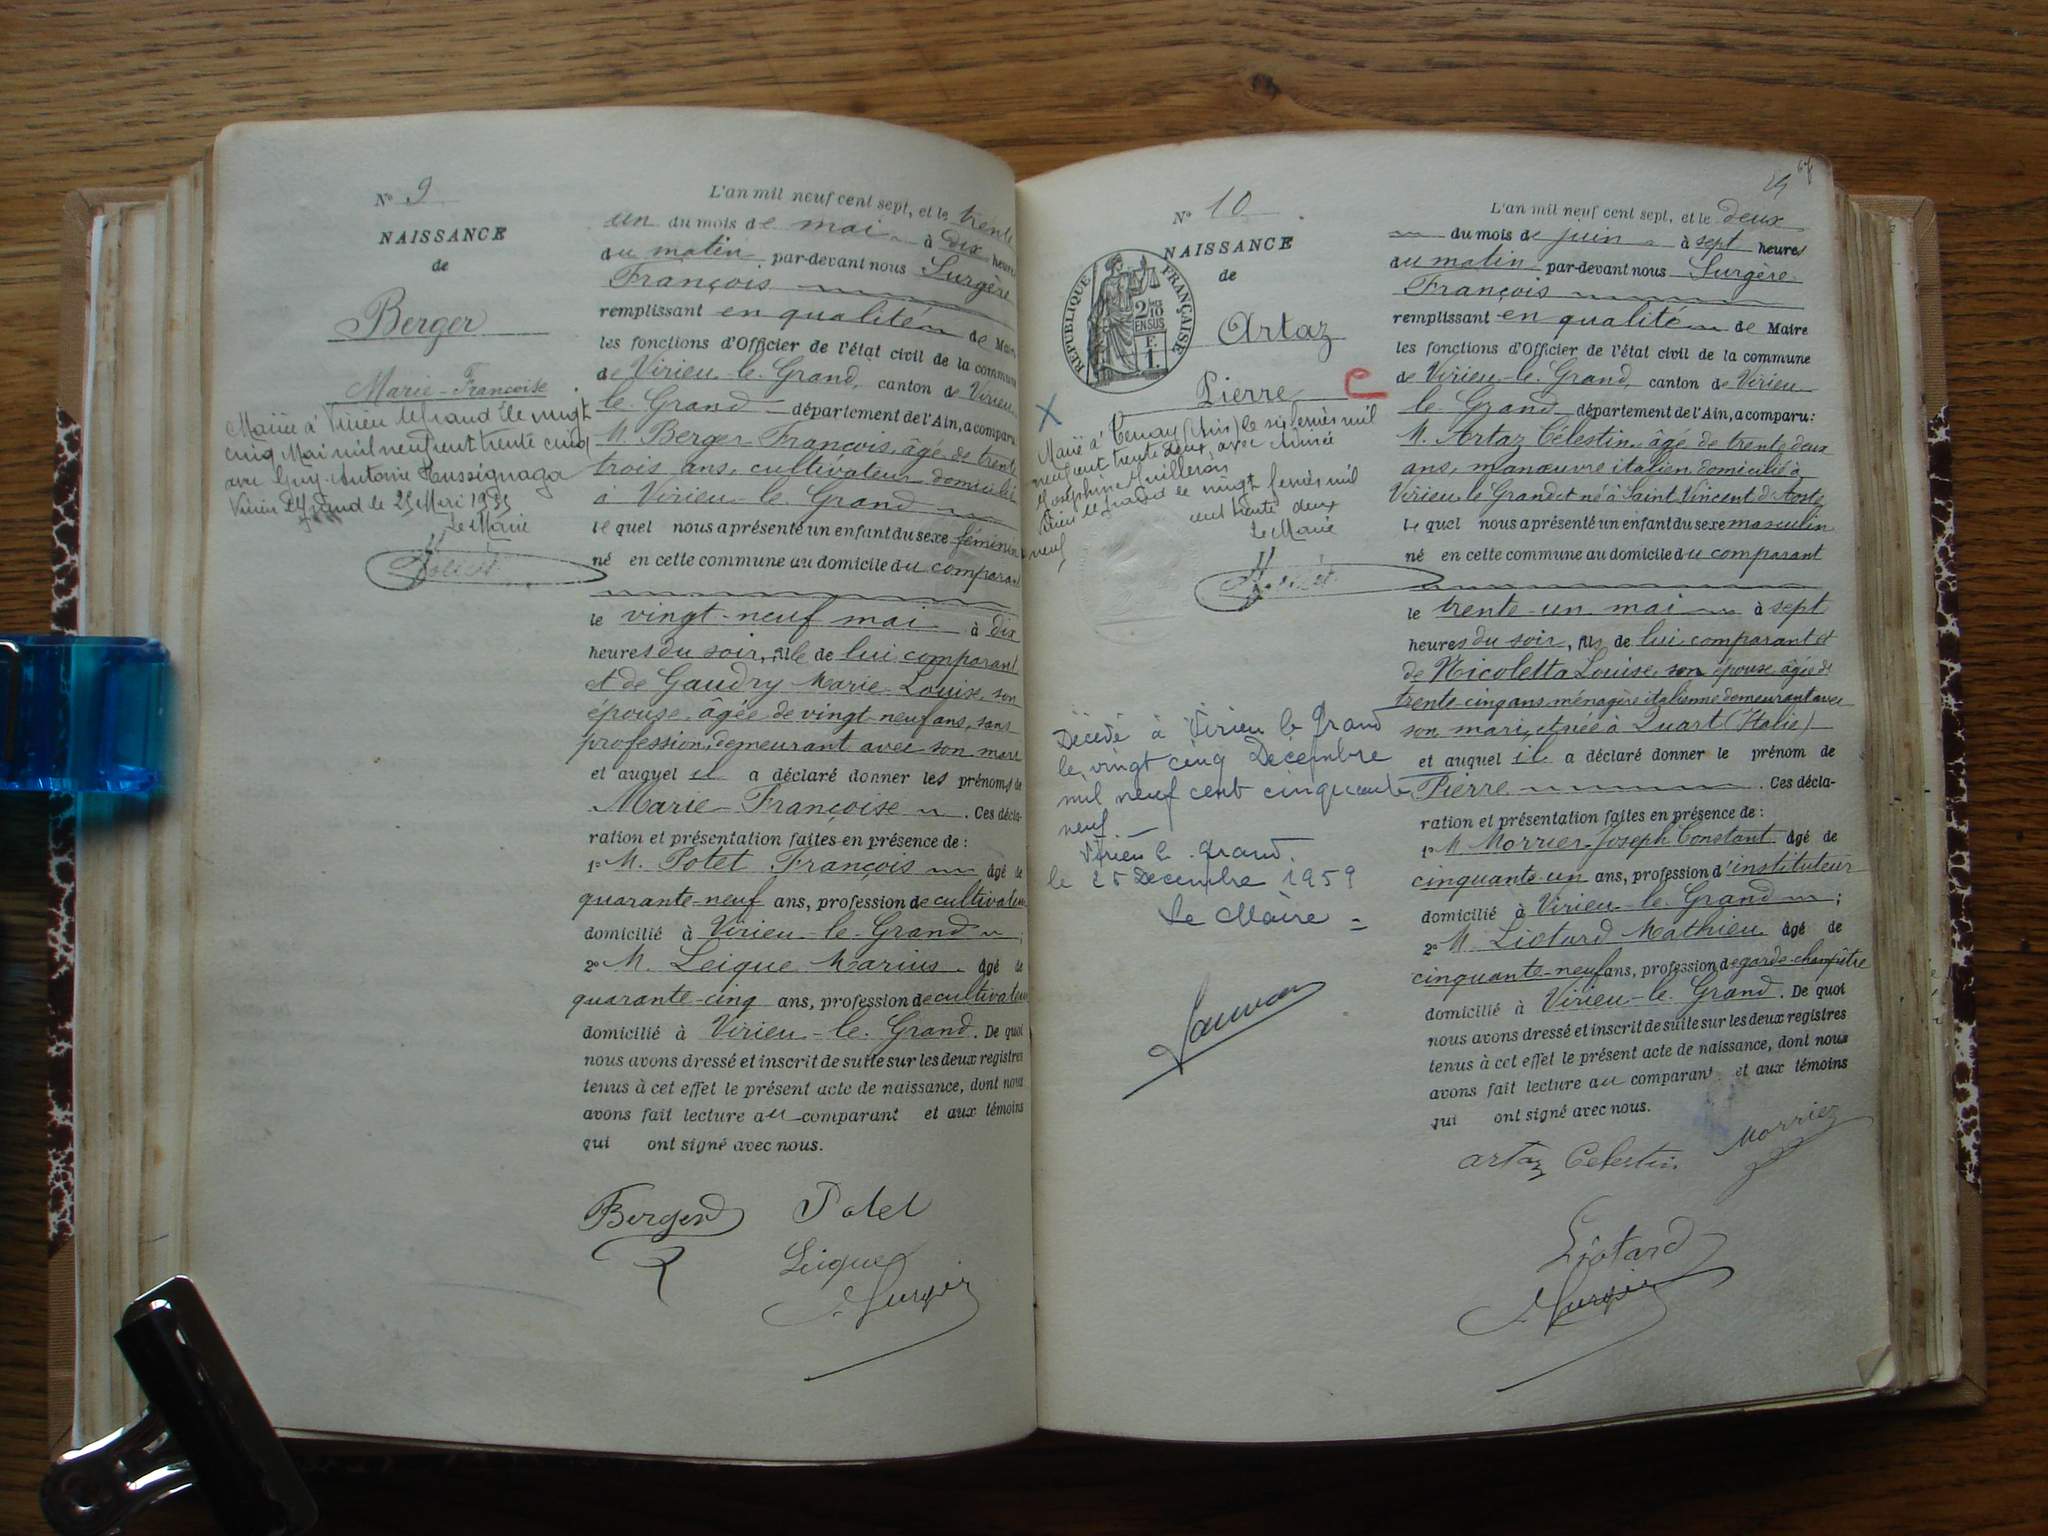 N° 9
NAISSANCE
de
Berger
Marie-Françoise
Mariée à Virieu le Grand le vingt
cinq Mai mil neuf cent trente cinq
avec Guy Antoine
Virieu le Grand le 25 Mai 1935
Le Maire
L'an mil neuf cent sept, et le trente
un du mois de mai à dix heures
du matin par-devant nous Surgère
François
remplissant en qualité de Maire
les fonctions d'Officier de l'état civil de la commune
de Virieu-le-Grand, canton de Virieu-
le-Grand département de l'Ain, a comparu:
M. Berger François, âgé de trente
trois ans, cultivateur domicilié
à Virieu-le-Grand
lequel nous a présenté un enfant du sexe féminin
né en cette commune au domicile du comparant
le vingt-neuf mai à dix
heures du soir, fille de lui comparant
et de Gaudry Marie-Louise, son
épouse, âgée de vingt-neuf ans, sans
profession, demeurant avec son mari
et auquel il a déclaré donner les prénoms de
Marie-Françoise. Ces décla-
ration et présentation faites en présence de:
1° M. Potet François âgé de
quarante-neuf ans, profession de cultivateur
domicilié à Virieu-le-Grand;
2° M. Leique Marius âgé de
quarante-cinq ans, profession de cultivateur
domicilié à Virieu-le-Grand. De quoi
nous avons dressé et inscrit de suite sur les deux registres
tenus à cet effet le présent acte de naissance, dont nous
avons fait lecture au comparant et aux témoins
qui ont signé avec nous.
Berger Potet
Leique
Surgère
N° 10
NAISSANCE
de
RÉPUBLIQUE FRANÇAISE
2/10
EN SUS
F.
1.
Artaz
Pierre
C
X
Marié à Tenay (Ain) le six février mil
neuf cent trente deux, avec Aimée
Joséphine
Virieu le Grand le vingt février mil
neuf cent trente deux
Le Maire
Décédé à Virieu le Grand
le vingt cinq Décembre
mil neuf cent cinquante
neuf.
Virieu le Grand.
le 25 Decembre 1959
Le Maire
L'an mil neuf cent sept, et le deux
du mois de juin à sept heures
du matin par-devant nous Surgère
François
remplissant en qualité de Maire
les fonctions d'Officier de l'état civil de la commune
de Virieu-le-Grand, canton de Virieu-
le-Grand département de l'Ain, a comparu:
M. Artaz Célestin, âgé de trente deux
ans, manœuvre italien domicilié à
Virieu le Grand et né à Saint Vincent d'Aoste
lequel nous a présenté un enfant du sexe masculin
né en cette commune au domicile du comparant
le trente-un mai à sept
heures du soir, fils de lui comparant et
de Nicoletta Louise, son épouse âgée de
trente-cinq ans ménagère italienne demeurant avec
son mari, et née à Quart (Italie)
et auquel il a déclaré donner le prénom de
Pierre. Ces décla-
ration et présentation faites en présence de:
1° M. Morrier Joseph Constant âgé de
cinquante-un ans, profession d'instituteur
domicilié à Virieu-le-Grand;
2° M. Liotard Mathieu âgé de
cinquante-neuf ans, profession de garde-champêtre
domicilié à Virieu-le-Grand. De quoi
nous avons dressé et inscrit de suite sur les deux registres
tenus à cet effet le présent acte de naissance, dont nous
avons fait lecture au comparant et aux témoins
qui ont signé avec nous.
Artaz Celestin Morrier
Liotard
Surgère